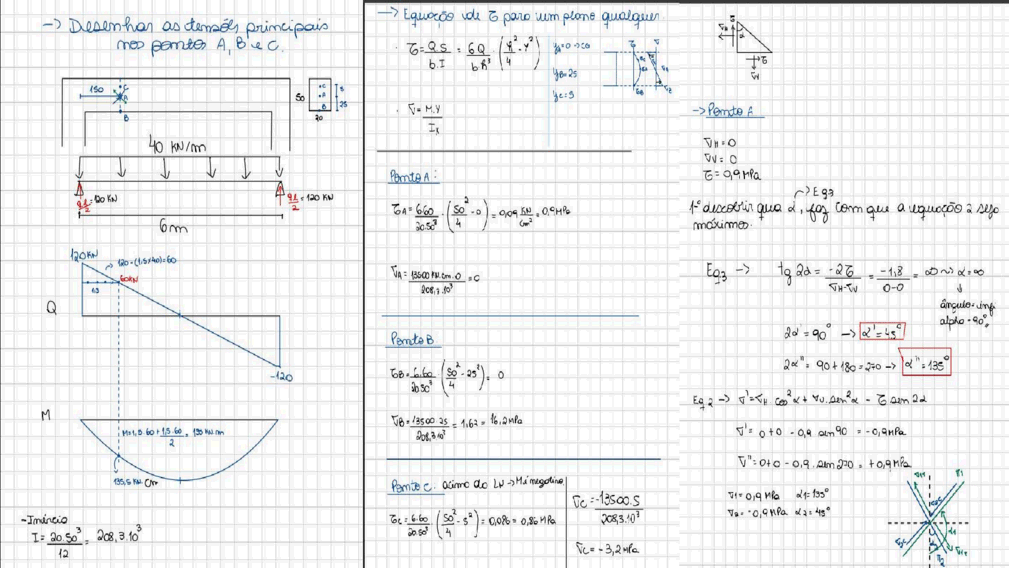 -> Desenhar as tensões principais
nos pontos A, B e C.
150
C
A
B
50
C
A
B
5
25
20
40 KN/m
ql/2 = 120 KN
ql/2 = 120 KN
6m
120KN
120-(1,5x40)=60
60KN
1,5
Q
-120
M
M=1,5.60+1,5.60/2=135 KN m
135,5 KN cm
-Inércia
I=20.50³/12=208,3.10³
-> Equação de τ para um plano qualquer
τ=Q.S/b.I=6Q/bh³(h²/4-y²)
yB=25
yC=5
σ=M.y/Ix
Ponto A:
τA=6.60/20.50³.(50²/4-0)=0,09 KN/cm²=0,9MPa
σA=13500 KN.cm.0/208,3.10³=0
Ponto B
τB=6.60/20.50³(50²/4-25²)=0
σB=13500.25/208,3.10³=1,62=16,2MPa
Ponto C: acima da LN->M é negativo
τC=6.60/20.50³(50²/4-5²)=0,086=0,86MPa
σC=-13500.5/208,3.10³
σC=-3,2MPa
-> Ponto A
σH=0
σV=0
τ=0,9MPa
Eq3
1º descobrir qua α, faz com que a equação 2 seja
máximos.
Eq3 -> tg 2α=-2τ/σH-σV=-1,8/0-0=∞ α=∞
ângulo=inf
alpha=90°
2α'=90° -> α'=45°
2α''=90+180=270-> α''=135°
Eq.2 -> σ'=σH cos²α+σV.sen²α-τ sen2α
σ'=0+0-0,9 sen90=-0,9MPa
σ''=0+0-0,9.sen270=+0,9MPa
σ1=0,9MPa α1=135°
σ2=-0,9MPa α2=45°